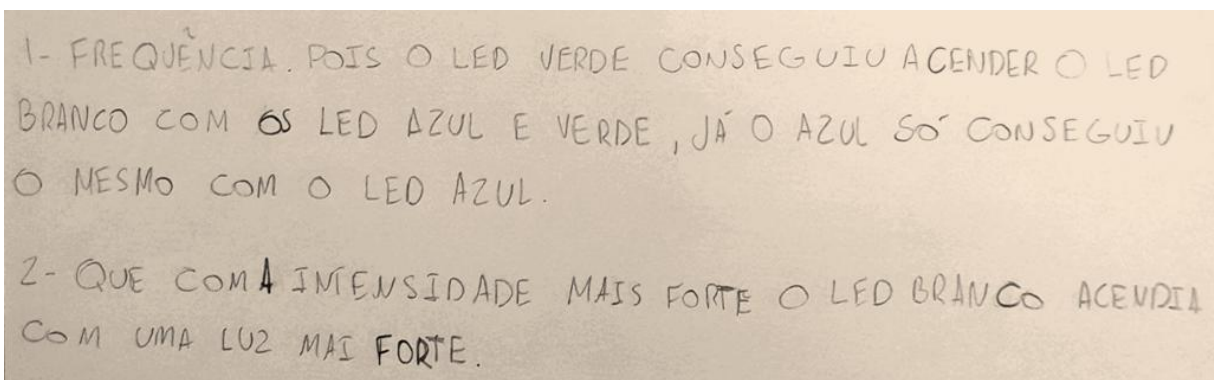 1- FREQUÊNCIA. POIS O LED VERDE CONSEGUIU ACENDER O LED
BRANCO COM OS LED AZUL E VERDE, JÁ O AZUL SÓ CONSEGUIU
O MESMO COM O LED AZUL.
2- QUE COM A INTENSIDADE MAIS FORTE O LED BRANCO ACENDIA
COM UMA LUZ MAI FORTE.